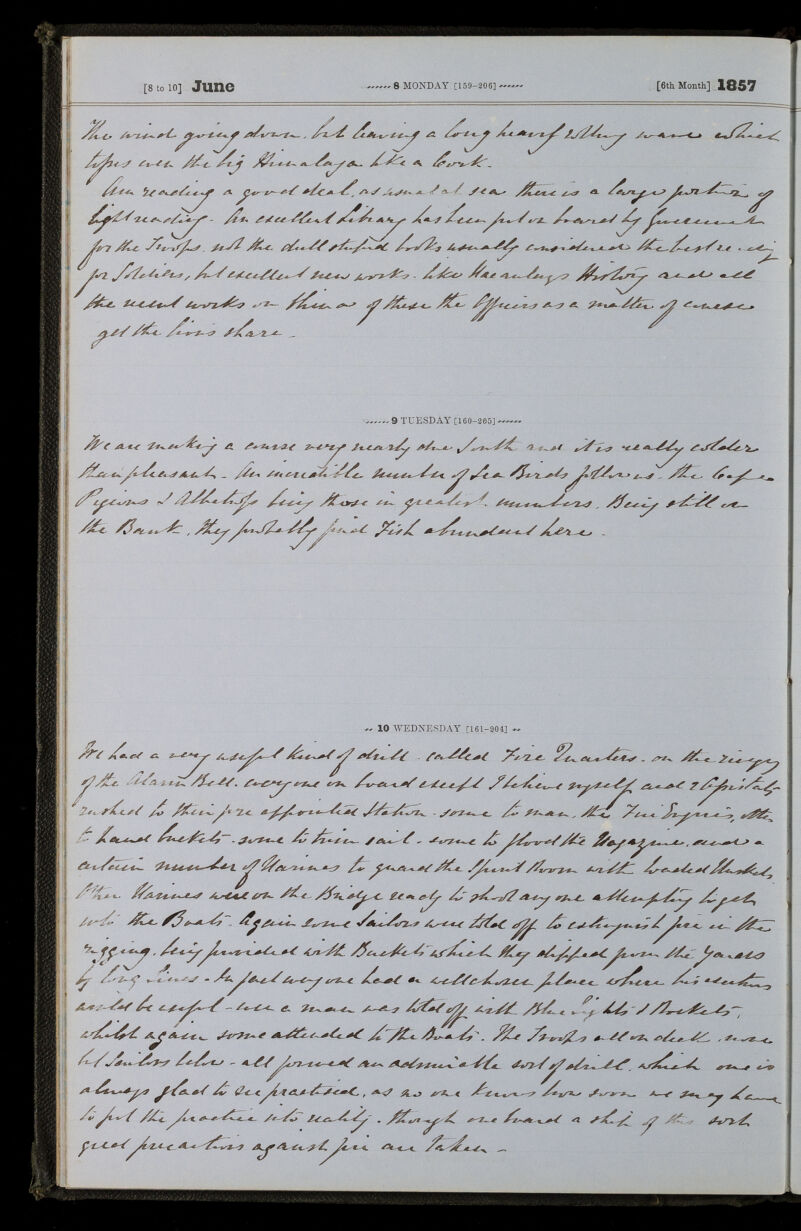 [8 to 10] June 8 MONDAY [159-206] [6th Month] 1857
The wind going down, but leaving a long heavy rolling wave which
tosses even the big Himalaya like a Cork.
Am reading a good deal, as usual at sea there is a large portion of
light reading. An excellent Library has been put on board by Government
for the Troops. not the dull stupid books usually considered the best reading
for Soldiers, but excellent new works. like Macaulays History and all
the recent works on China of these the Officers as a matter of course
get the lions share.
9 TUESDAY [160-205]
We are making a course very nearly due South and it is really colder
than pleasant. An incredible number of Sea Birds follow us. the Cape
Pigeons & Albatross being those in greatest numbers. Being still on
the Bank, they probably find Fish abundant here.
10 WEDNESDAY [161-204]
We had a very useful kind of drill called Fire Quarters. on the ringing
of the Alarm Bell. everyone on board except I believe myself and 2
rushed to their pre appointed Station. some to man the Fire Engines, others
to hand buckets. some to trim sail. some to flood the Magazine, and a
certain number of Marines to guard the Spirit Room with loaded Muskets.
Other Marines were on the Bridge ready to shoot any one attempting to get
into the Boats. Again some Sailors were told off to extinguish fire in the
rigging, being provided with Buckets which they dipped from the Yards
by long Lines. In fact everyone had a well chosen place where his exertions
would be useful - even a man was told off with Blue Lights & Rockets,
whilst again some attended to the Boats. The Troops all on deck none
but Sailors below - all formed an admirable sort of drill. which one is
always glad to see practised, as no one knows how soon we may have
to put the practice into reality. though on board a ship of this sort
great precautions against fire are taken -